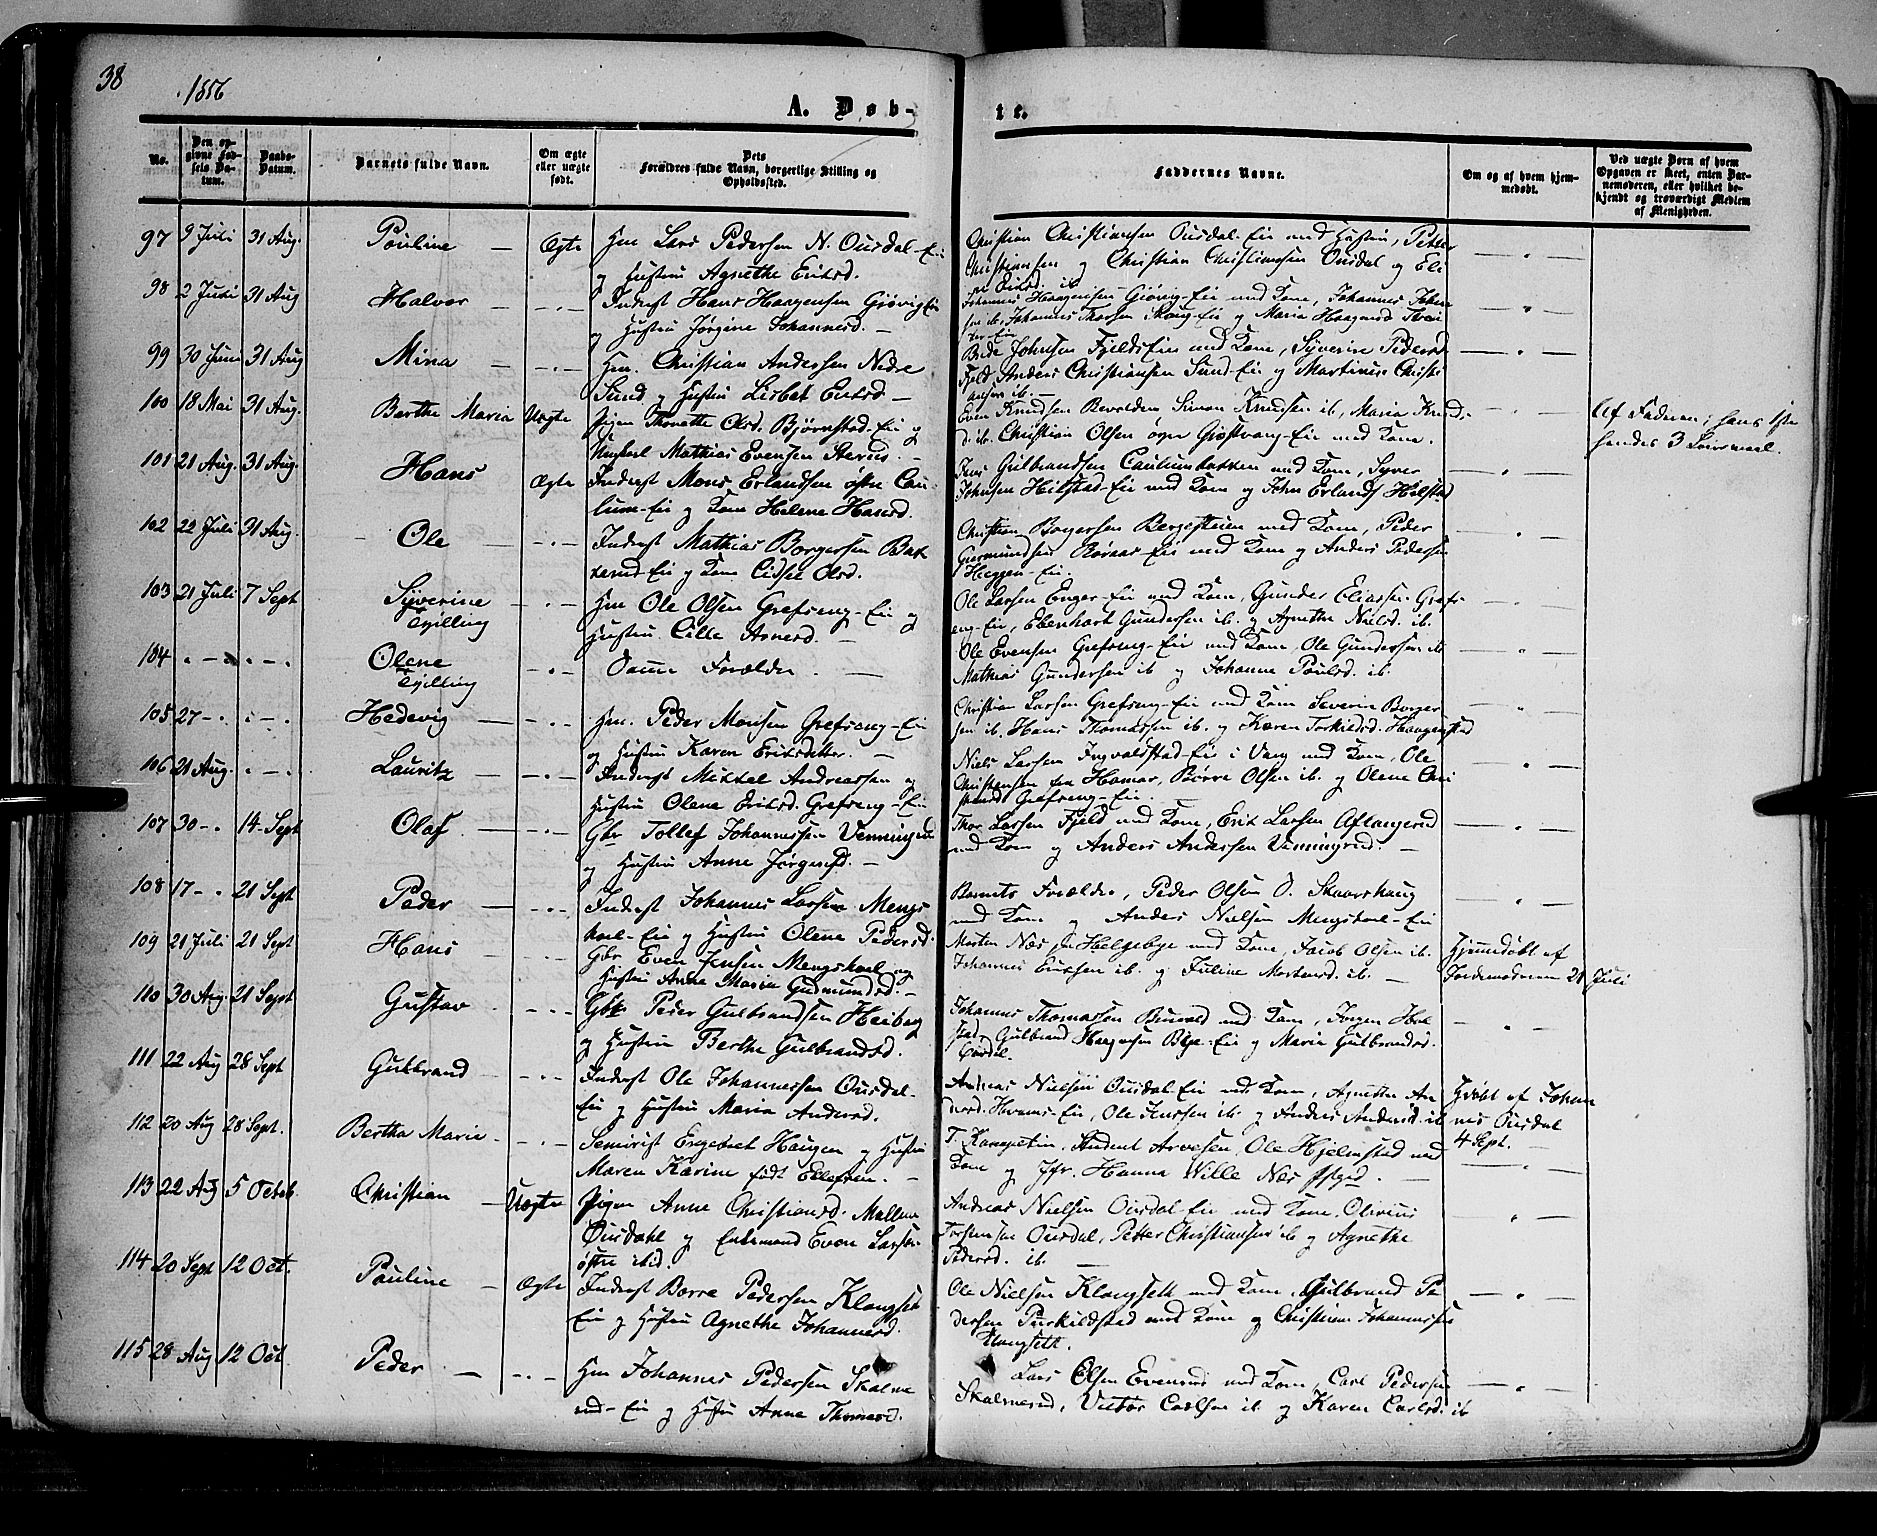 38
1856
A. Døb-
te.
No.
Den op-
givne Fød-
sels Da-
tum.
Daabs-
Datum.
Barnets fulde Navn.
Om ægte
eller uægte
født.
Dets
Forældres fulde Navn, borgerlige Stilling og
Opholdssted.
Faddernes Navne.
Om og af hvem hjem-
medøbt.
Ved uægte Born af hvem
Opgaven er skeet, enten Bar-
nemoderen, eller hvilket be-
kjendt og troværdigt Medlem
af Menigheden.
97 9 Juli 31 Aug. Pauline — Ægte Hm Lars Pedersen N. Ousdal-Eie
og Hustru Agnethe Eriksd.
Christian Christiansen Ousdal-Eie med Hustru, Petter
Christiansen og Christian Christiansen Ousdal og Eli
98 2 Juli 31 Aug Halvor — " — Inderst Hans Haagensen Gjøvig-Eie
og Hustru Jørgine Johannesd. —
Johannes Haagensen Gjøvig-Eie med Kone, Johannes Johan
sen ib, Johannes Thorsen Houg-Eie og Maria Haagensd
99 30 Juni 31 Aug Mina — " — Hm. Christian Andersen Nedre
Sund og Hustru Lisbet Eriksd —
Johnsen Fjelds-Eie med Kone, Syverine Pedersd
Fjeld, Anders Christiansen Sund-Eie og Martinus Christi
ansen ib. —
100 18 Mai 31 Aug. Berthe Maria Uægte Pigen Thonette Olsd. Bjørnstad-Eie og
Ungkarl Mathias Evensen
Even Knudsen Simon Knudsen ib, Maria Knud-
d. ib. Christian Olsen øvre Gjøstvang-Eie med Kone.
Af Faderen; hans 1ste
hendes 3 Leiermaal.
101 21 Aug. 31 Aug. Hans Ægte Inderst Mons Erlandsen østre Cau-
lum-Eie og Kone Helene Hansd.
Jens Gulbrandsen Caulumbakken med Kone, Syver
Johnsen Hilstad-Eie med Kone og John Erlands Hilstad
102 22 Juli 31 Aug. Ole — " — Inderst Mathias Borgersen Bak
kerud-Eie og Kone Eidsel Olsd.
Christian Borgersen Bergestuen med Kone, Peder
Gudmundsen Røraas-Eie med Kone og Anders Pedersen
Heggen-Eie.
103 21 Juli 7 Sept Syverine
Tvilling — " — Hm Ole Olsen Grefseng-Eie og
Hustru Cille Arnesd. —
Ole Larsen Enger-Eie med Kone, Gunder Eliassen Grefs-
eng-Eie, Ebenhart Gundersen ib. og Agnethe Nielsd. ib.
104 " — " " — " Olene
Tvilling — " — Samme Forældre. —
Ole Evensen Grefseng-Eie med Kone, Ole Gundersen ib
Mathias Gundersen ib og Johanne Poulsd. ib.
105 27 — " " — " Hedevig — " — Hm. Peder Monsen Grefseng-Eie
og Hustru Karen Eriksdatter. —
Christian Larsen Grefseng-Eie med Kone Severin Borger
sen ib. Hans Thomassen ib. og Karen Torkildsd. Haagenstad
106 21 Aug. " — " Lauritz — " — Inderst Mikkel Andreassen og
Hustru Olene Eriksd. Grefseng-Eie
Niels Larsen Ingvaldstad-Eie i Vang med Kone, Ole
Christensen fra Hamar, Borre Olsen ib. og Olene Chri
stiansd Grefseng-Eie.
107 30 — " 14 Sept Olaf — " — Gbr Tollef Johannessen Venningrud
og Hustru Anne Jørgensd. —
Thor Larsen Fjeld med Kone, Erik Larsen Aflangerud
med Kone og Anders Andersen Venningrud. —
108 17 — " 21 Sept Peder — " — Inderst Johannes Larsen Mengs
hoel-Eie og Hustru Olene Pedersd.
Barnets Forældre, Peder Olsen Ø. Skaarshaug
med Kone og Anders Nielsen Mengshoel-Eie
109 21 Juli 21 Sept Hans — " — Gbr Even Jensen Mengshoel og
Hustru Anne Maria Gudmundsd. —
Morten Næs Helgebye med Kone, Jacob Olsen ib.
Johannes Eriksen ib. og Juline Mortensd. ib. —
Hjemmedøbt af
Jordemoderen 21 Juli
110 30 Aug. 21 Sept Gustav — " — Gbr Peder Gulbrandsen Heiberg
og Hustru Berthe Gulbrandsd.
Johannes Thomassen med Kone, Jørgen Hol
stad, Gulbrand Haagensen Bye-Eie og Marie Gulbrandsd.
111 22 Aug 28 Sept Gulbrand — " — Inderst Ole Johannessen Ousdal-
Eie og Hustru Maria Andersd.
Andreas Nielsen Ousdal-Eie med Kone, Agnethe An
dersd. Hvams-Eie, Ole Jenssen ib. og Anders Andersd. ib
Hjdøbt af Johan
nes Ousdal
4 Sept. —
112 20 Aug 28 Sept. Bertha Marie — " — Seminrist Engebret Haugen og Hustru
Maren Karine født Ellefsen. —
Student Arvesen, Ole Hjelmstad med
Kone og Jfr. Hanna Wille Næs Pgd. —
113 22 Aug 5 Octob. Christian — Uægte Pigen Anne Christiansd. Mellem
Ousdahl og Enkemand Even Larsen
østre ibid.
Andreas Nielsen Ousdal-Eie med Kone, Olivius
Torstensen Ousdal, Petter Christiansen ib og Agnethe
Pedersd. ib. —
114 20 Sept 12 Oct. Pauline — Ægte Inderst Borre Pedersen Klangset
Eie og Hustru Agnethe Johannesd.
Ole Nielsen Klangseth med Kone, Gulbrand Pe
dersen Purkildstad med Kone og Christian Johannessen
Klangseth.
115 28 Aug 12 Oct. Peder — " — Hm Johannes Pedersen Skolme
rud-Eie og Hustru Anne Thomasd.
Lars Olsen Evensrud med Kone, Carl Pedersen
Skolmerud, Victor Carlsen ib. og Karen Carlsd. ib